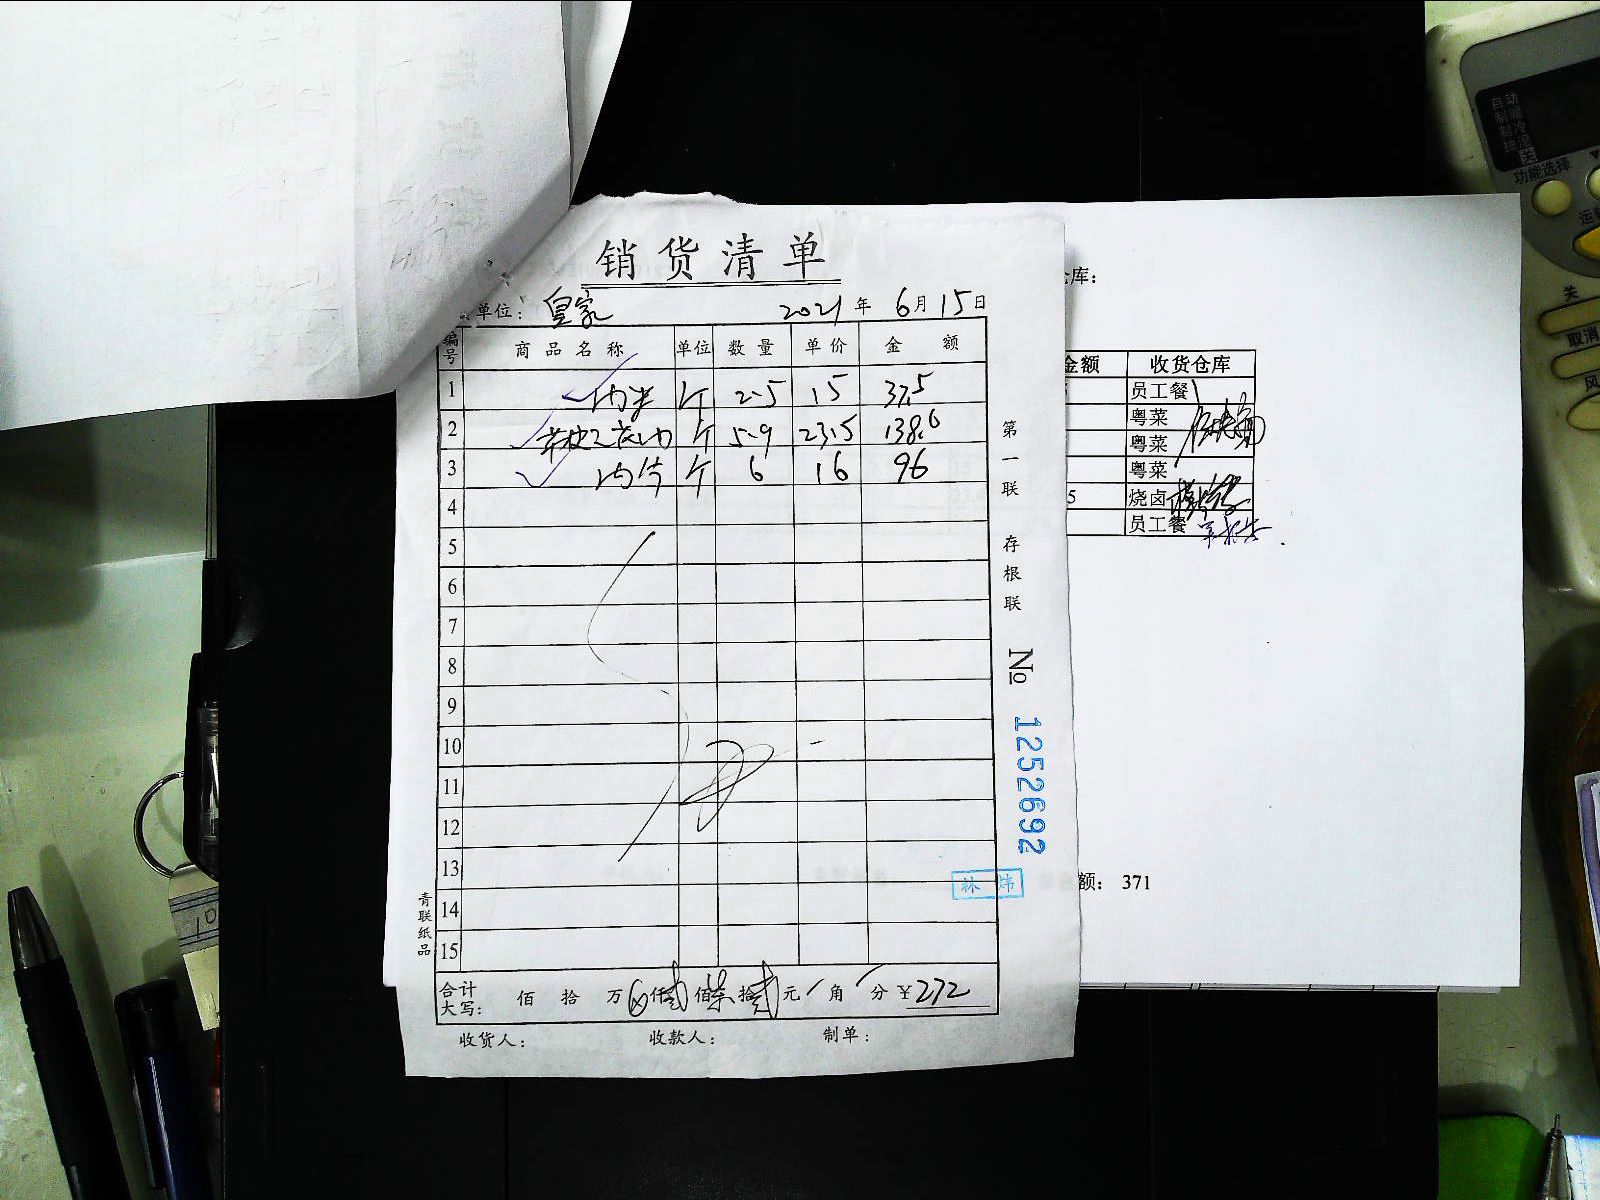 销货清单
单位: 皇家 2021年6月15日
编号 商品名称 单位 数量 单价 金额
1 斤 2.5 15 37.5
2 斤 5.9 23.5 138.6
3 斤 6 16 96
4
5
6
7
8
9
10
11
12
13
14
15
合计大写: 佰 拾 万 仟贰佰柒拾贰元 角 分 ¥272
收货人: 收款人: 制单:
第一联 存根联
№ 1252692
林 炜
青联纸品
仓库:
金额 收货仓库
员工餐
粤菜
粤菜
粤菜
5 烧卤
员工餐
额: 371
自动
制暖
制冷
抽湿
关
功能选择
关
取消
风